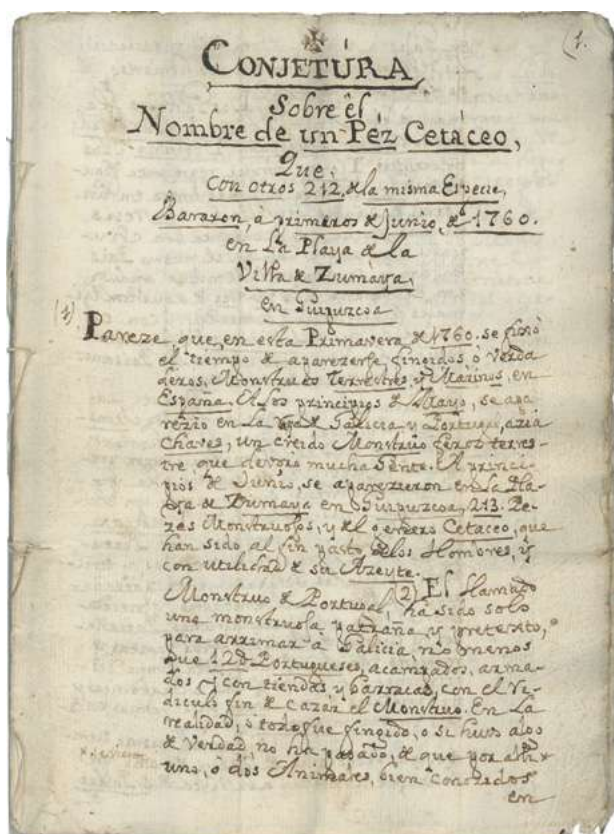 (1.
CONJETÚRA
Sobre êl
Nombre de un Péz Cetàceo,
Que,
Con otros 212. de la misma Especie,
Bararon, à primeros de Junio, de 1760.
en La Playa de la
Villa de Zumaya,
en Guipuzcoa
(1) Pareze, que, en esta Primavera de 1760. se fixó
el tiempo de aparezerse, fingidos ò verda
deros, Monstruos Terrestres, y Marinos, en
España. A Los principios de Mayo, se apa
rezio en La Raya de Galicia y Portugal, azia
Chaves, un creido Monstruo feroz terres-
tre que devorò mucha Gente. A princi-
pios de Junio, se aparezieron en La Pla-
ya de Zumaya en Guipuzcoa, 213. Pe-
zes Monstruosos, y del genero Cetaceo, que
han sido al fin pasto de los Hombres, y
con utilidad de su Azeyte.
(2) El llamado
Monstruo de Portugal, ha sido solo
una monstruosa patraña y pretexto,
para arrimar à Galicia, no menos
que 12 Portugueses, acampados, arma-
dos y con tiendas y barracas, con el ri-
diculo fin de cazar el Monstruo. En La
realidad, ò todo fue fingido, ò si huvo algo
de verdad, no ha pasado, de que por alli
uno, ò dos Animales, bien conozidos
en